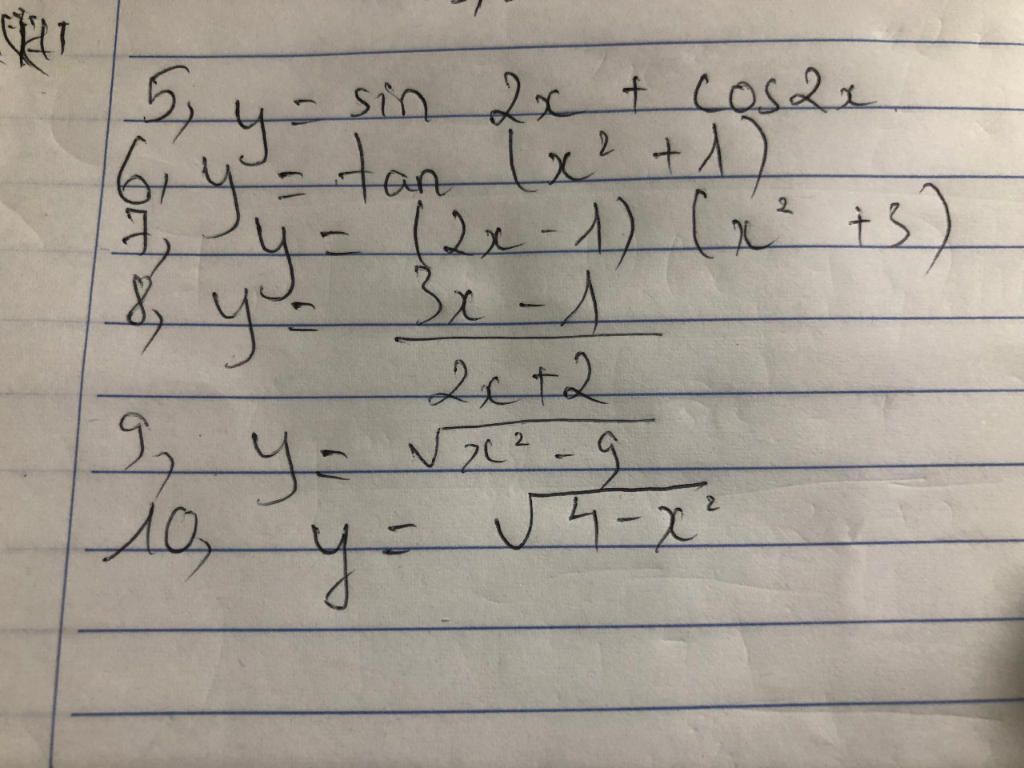 5, y = sin 2x + cos2x
6, y = tan (x² + 1)
7, y = (2x - 1) (x² + 3)
8, y = 3x - 1
2x + 2
9, y = √x² - 9
10, y = √4 - x²